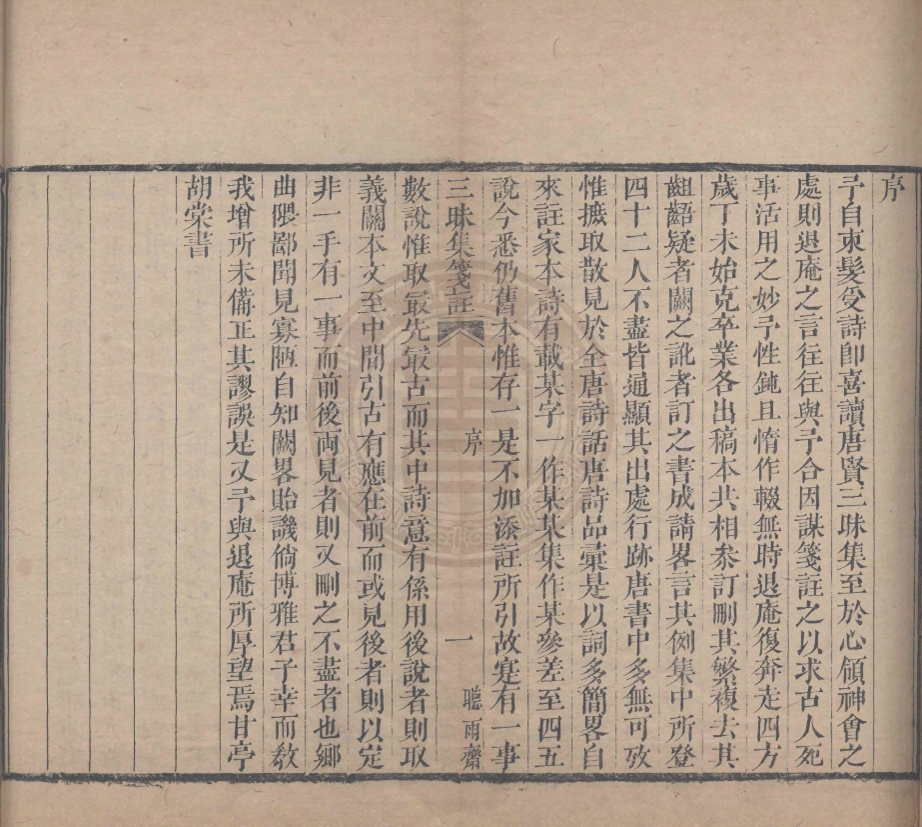 序
予自束髮受詩卽喜讀唐賢三昧集至於心領神會之
處則退庵之言往往與予合因謀箋註之以求古人死
事活用之妙予性鈍且惰作輟無時退庵復奔走四方
歲丁未始克卒業各出稿本共相叅訂刪其繁複去其
齟齬疑者闕之訛者訂之書成請畧言其例集中所登
四十二人不盡皆通顯其出處行跡唐書中多無可攷
惟摭取散見於全唐詩話唐詩品彙是以詞多簡畧自
來註家本詩有載某字一作某某集作某參差至四五
說今悉仍舊本惟存一是不加添註所引故寔有一事
三昧集箋註 序 一 聽雨齋
數說惟取最先最古而其中詩意有係用後說者則取
義關本文至中間引古有應在前而或見後者則以定
非一手有一事而前後兩見者則又刪之不盡者也鄉
曲隈鄙聞見寡陋自知闕畧貽譏倘博雅君子幸而敎
我增所未備正其謬誤是又予與退庵所厚望焉甘亭
胡棠書